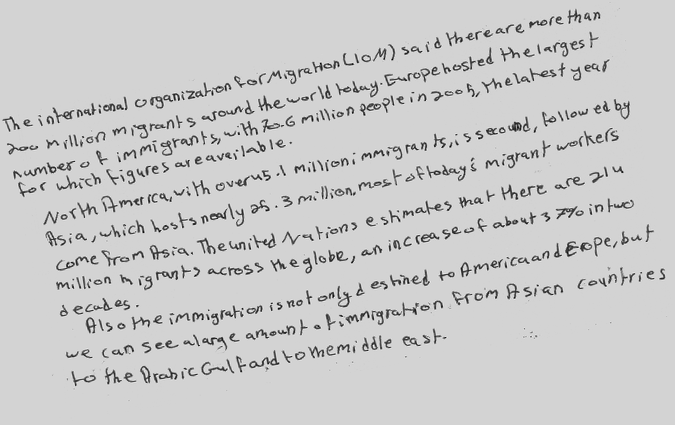 The international organization for Migration (IOM) said there are more than
200 million migrants around the world today. Europe hosted the largest
number of immigrants, with 70.6 million people in 2005, the latest year
for which figures are available.
North America, with over 45.1 million immigrants, is second, followed by
Asia, which hosts nearly 25.3 million, most of today's migrant workers
come from Asia. The united Nations estimates that there are 214
million migrants across the globe, an increase of about 37% in two
decades.
Also the immigration is not only destined to America and Erope, but
we can see a large amount of immigration from Asian countries
to the Arabic Gulf and to the middle east.